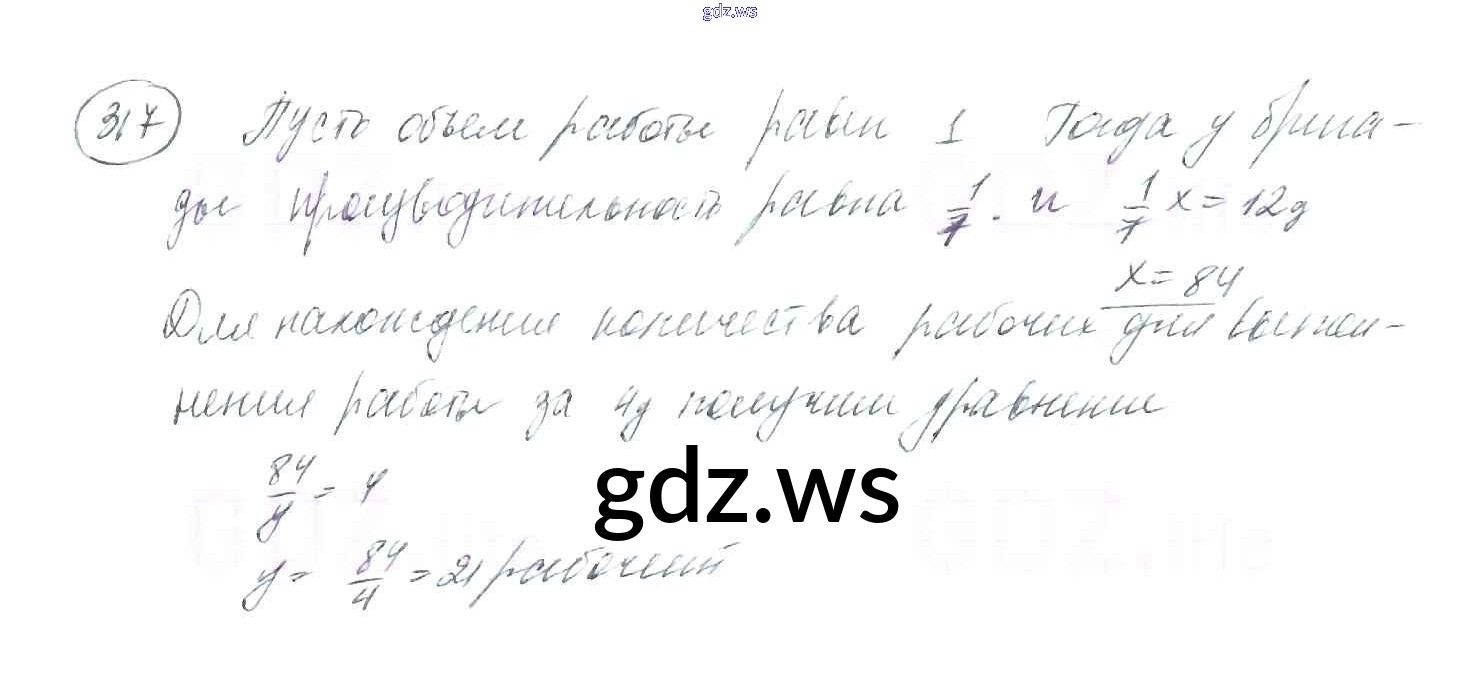 gdz.ws
317 Пусть объем работы равен 1 Тогда у брига-
ды производительность равна 1/7. и 1/7 x = 12д
x = 84
Для нахождения количества рабочих для выпол-
нения работы за 4д получим уравнение
84/y = 4
gdz.ws
y = 84/4 = 21 рабочий